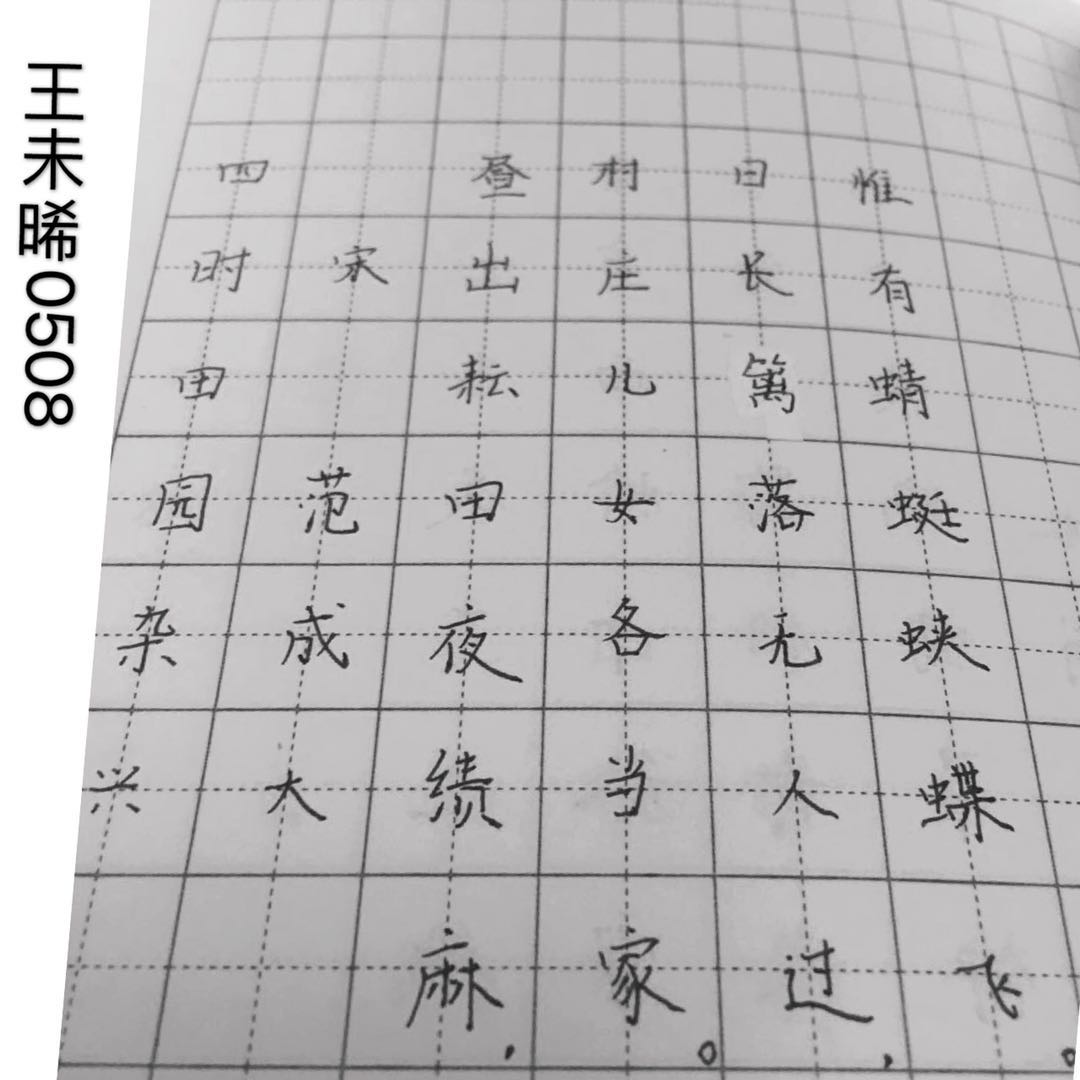 王未晞0508
四时田园杂兴
宋 范成大
昼出耘田夜绩麻，
村庄儿女各当家。
日长篱落无人过，
惟有蜻蜓蛱蝶飞。